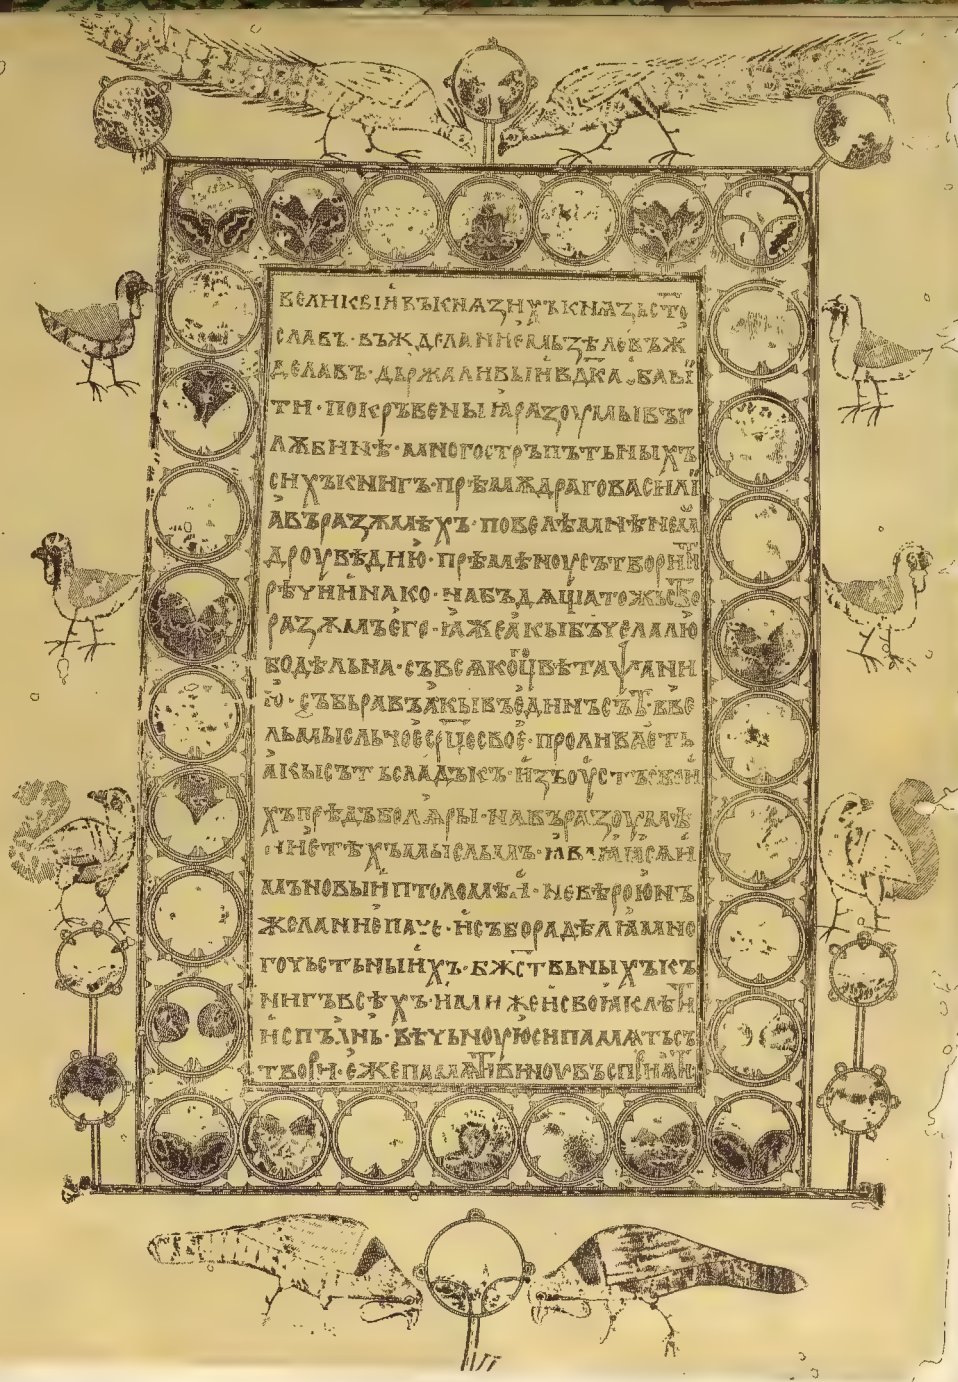 ВЕЛИКЪІЙ ВЪ КНѦЗИХЪ КНѦЗЬ СТО
СЛАВЪ · ВЪЖДЕЛАНИЕМЬ ЗѢЛО ВЪЖ
ДЕЛАВЪ · ДЬРЖАЛИВЫЙ ВЛДКА · ѠБАВИ
ТИ · ПОКРЪВЕНЫѨ РАЗОУМЫ ВЪ Г
ЛѪБИНѢ · МНОГОСТРЪПЪТЬНЫХЪ
СИХЪ КНИГЪ · ПРѢМѪДРАГО ВАСИЛІ
А ВЪ РАЗѪМѢХЪ · ПОВЕЛѢ МНѢ НЕМ
ДРОУВѢДИЮ · ПРѢМѢНОУ СЪТВОРИТИ
РѢЧИ ИНАКО · НАБЪДѦЩА ТОЖЬСТВО
РАЗѪМЪ ЕГО · ѨЖЕ АКЫ БЪЧЕЛА ЛЮ
БОДѢЛЬНА · СЪ ВСѦКОГО ЦВѢТА ПСАНИ
Ю · СЪБЬРАВЪ АКЫ ВЪ ЕДИНЪ СЪТЪ · ВЪ ВЕ
ЛЬМЫСЛЬНОЕ СРЦЕ СВОЕ · ПРОЛИВАЕТЬ
АКЫ СЪТЪ СЛАДЪКЪ · ИЗЪ ОУСТЪ СВОИ
ХЪ ПРѢДЪ БОЛѦРЫ · НА ВЪРАЗОУМѢ
НИЕ ТѢХЪ МЫСЛЬМЪ · ѨВЛѦѨСѦ И
МЪ НОВЫЙ ПТОЛОМѢЙ · НЕ ВѢРОЮ НЪ
ЖЕЛАНИЕ ПАЧЕ · И СЪБОРА ДѢЛѦ МНО
ГОЧЬСТЬНЫИХЪ · БЖСТВЬНЫХЪ КЪ
НИГЪ ВСѢХЪ · ИМИ ЖЕ И СВОѨ КЛѢТИ
ИСПЪЛНЬ · ВѢЧЬНОУЮ СИ ПАМѦТЬ СЪ
ТВОРИ · ЕЖЕ ПАМѦТИ ВИНОУ ВЪСПРИѨТИ